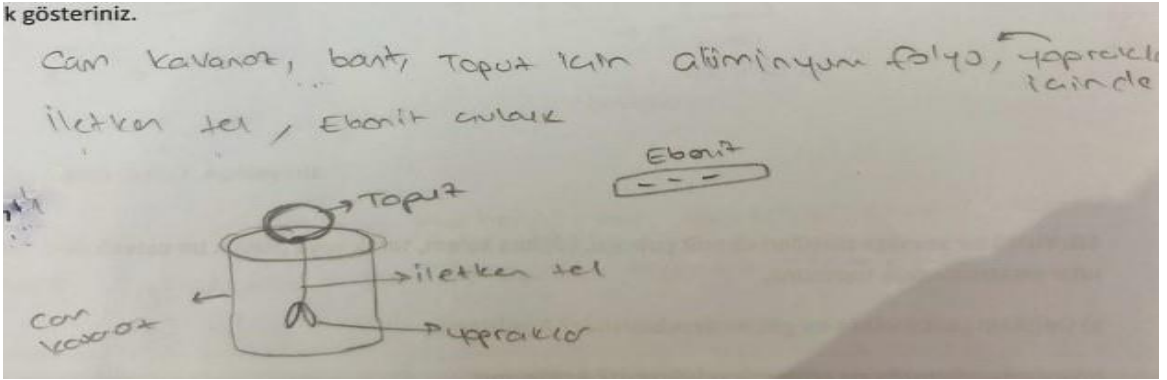 k gösteriniz.
Cam kavanoz, bant, Topuz için alüminyum folyo, yaprakla
içinde
iletken tel, Ebonit çubuk
Ebonit
Topuz
iletken tel
Cam
kavanoz
yapraklar